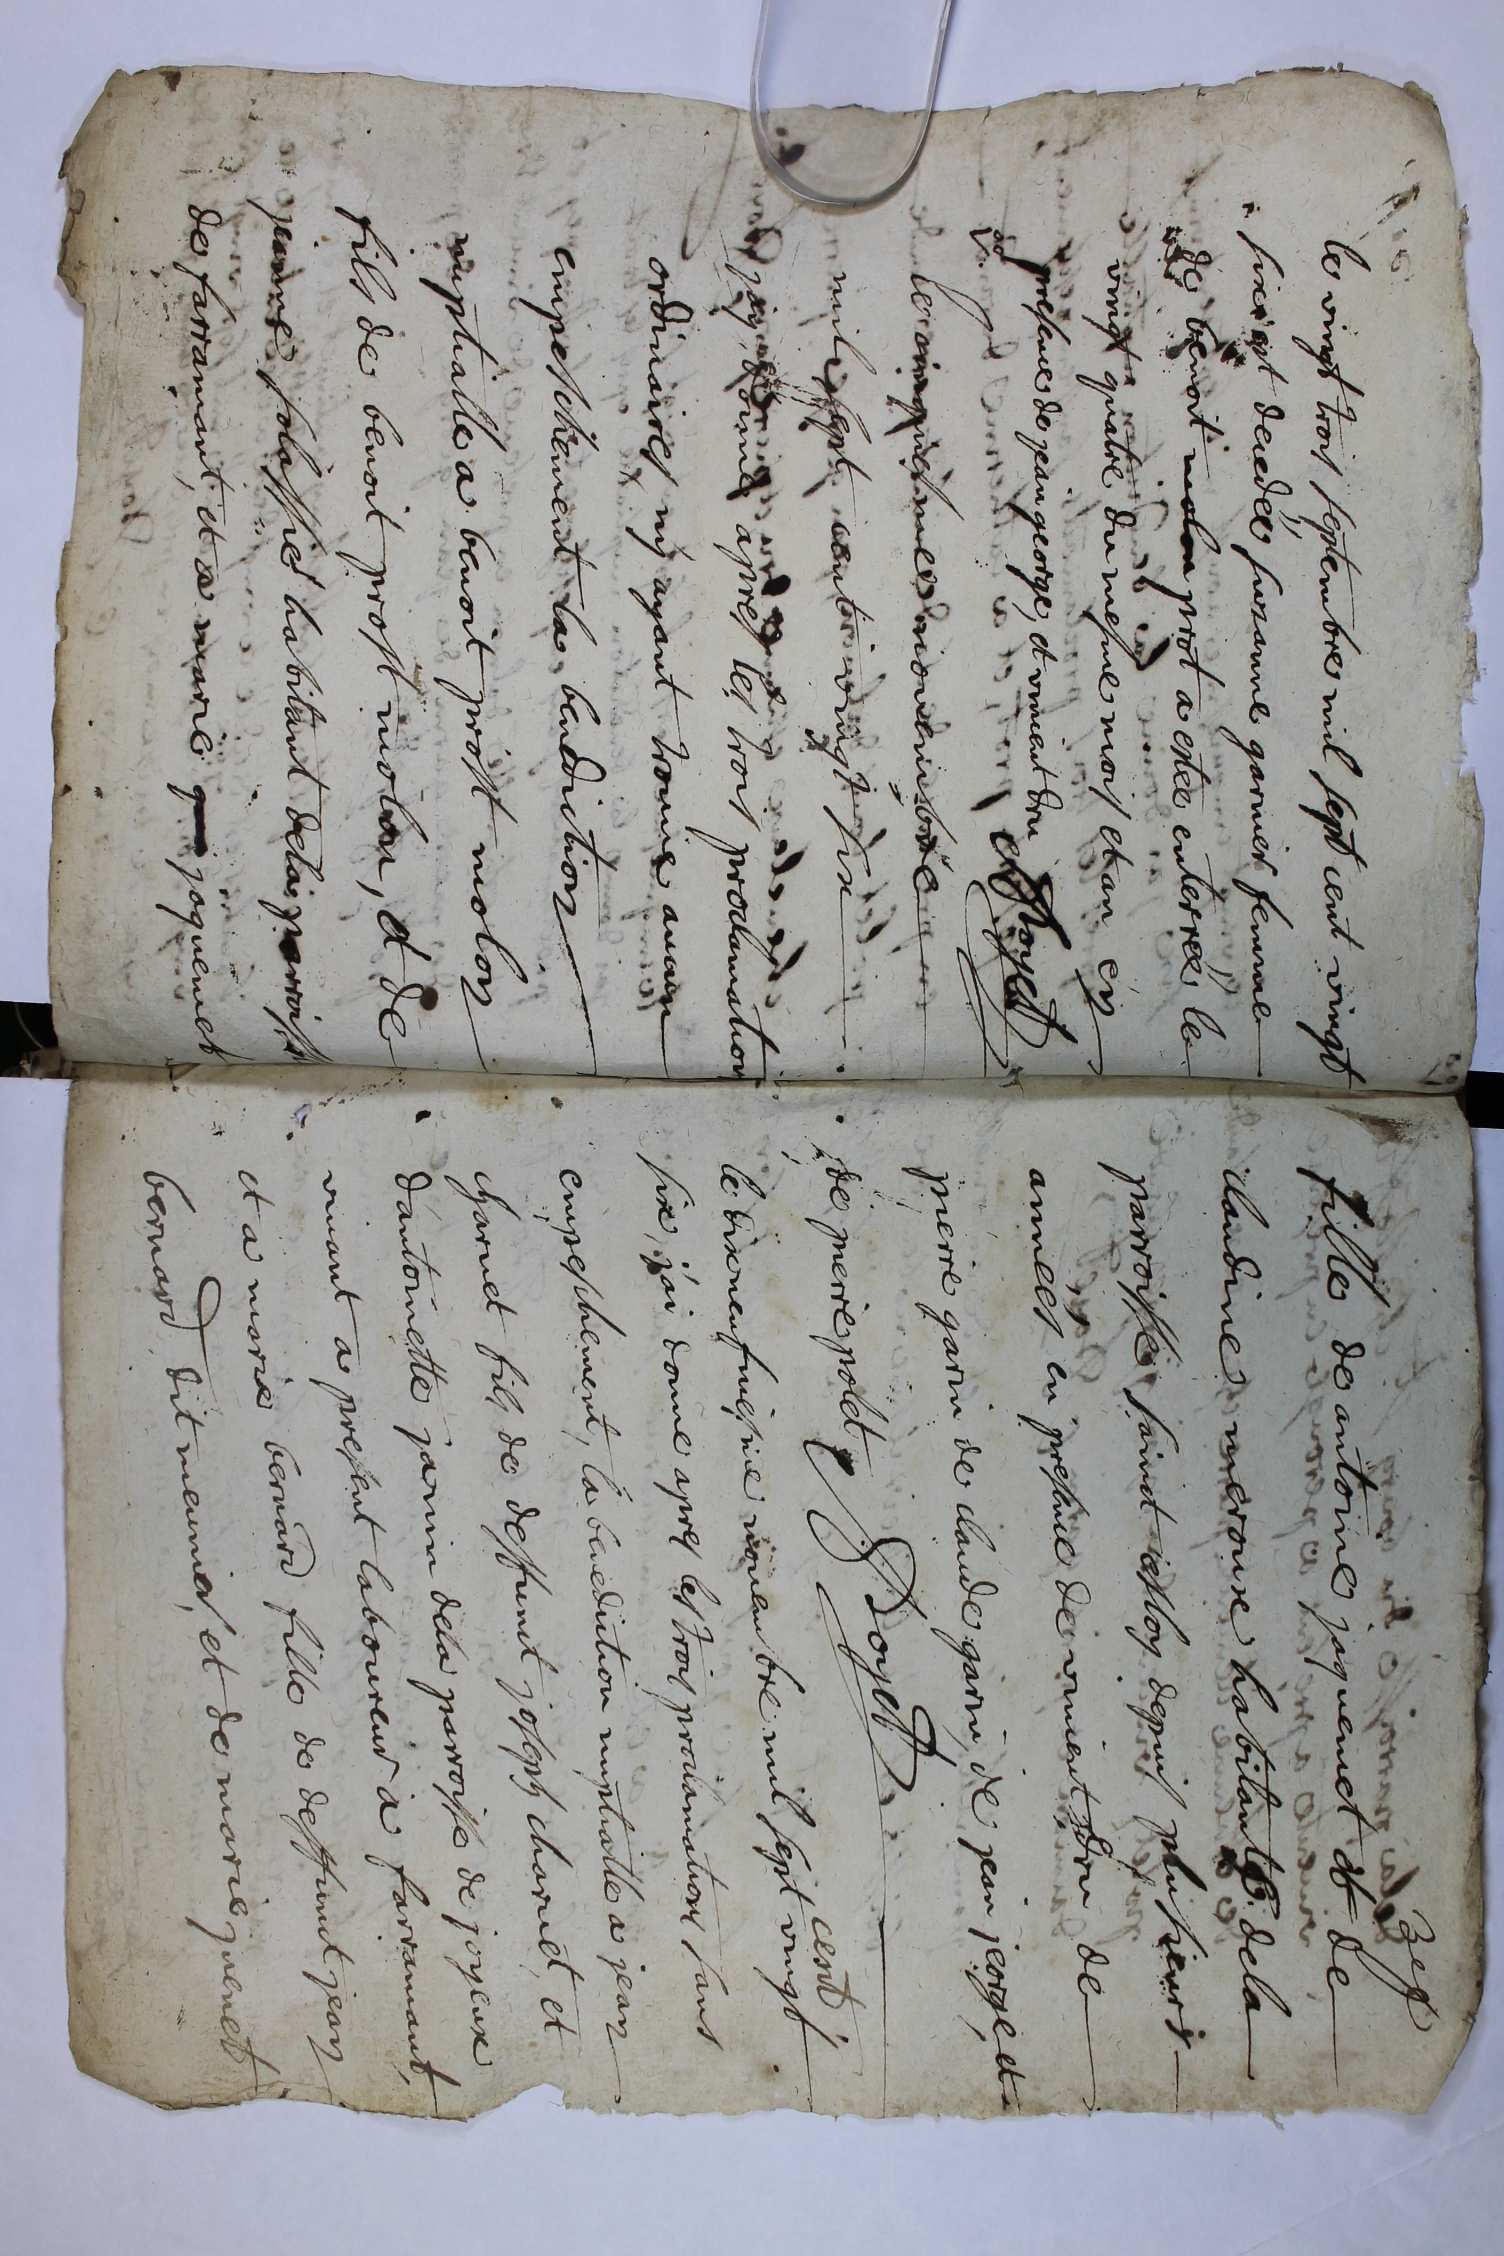 le vingt trois septembre mil sept cent vingt
six est decedée suzanne garnier femme
de benoit prost a estée enterrée le
vingt quatre du mesme mois et an en
presence de jean george, et vincent dru
Doyet
le cinquiesme novembre
mil sept cent vingt six
j'ay donné apres les trois proclamation
ordinaires ny ayant trouvé aucun
empeschement la benediction
nuptialle a benoit prost molon
fils de benoit prost molon, et de
jeanne habitant de la parroisse
de farramant, et a marie jaquemet
3es
fille de antoine jaquemet et de
claudine habitants de la
parroisse saint depuis plusieurs
années en presence de vincent Dru de
pierre garin de claude garin, de jean jeorge, et
de pierre polet
Doyet
le dixneufviesme novembre mil sept cent vingt
six, j'ai donné apres les trois proclamations sans
empeschement, la benediction nuptialle a jean
charnet fils de deffunt joseph charnet, et
d'antoinette janin de la parroisse de joyeux
vivant a present laboureur a farramant,
et a marie bernard fille de deffunt jean
bernard, dit meunier, et de marie quenet